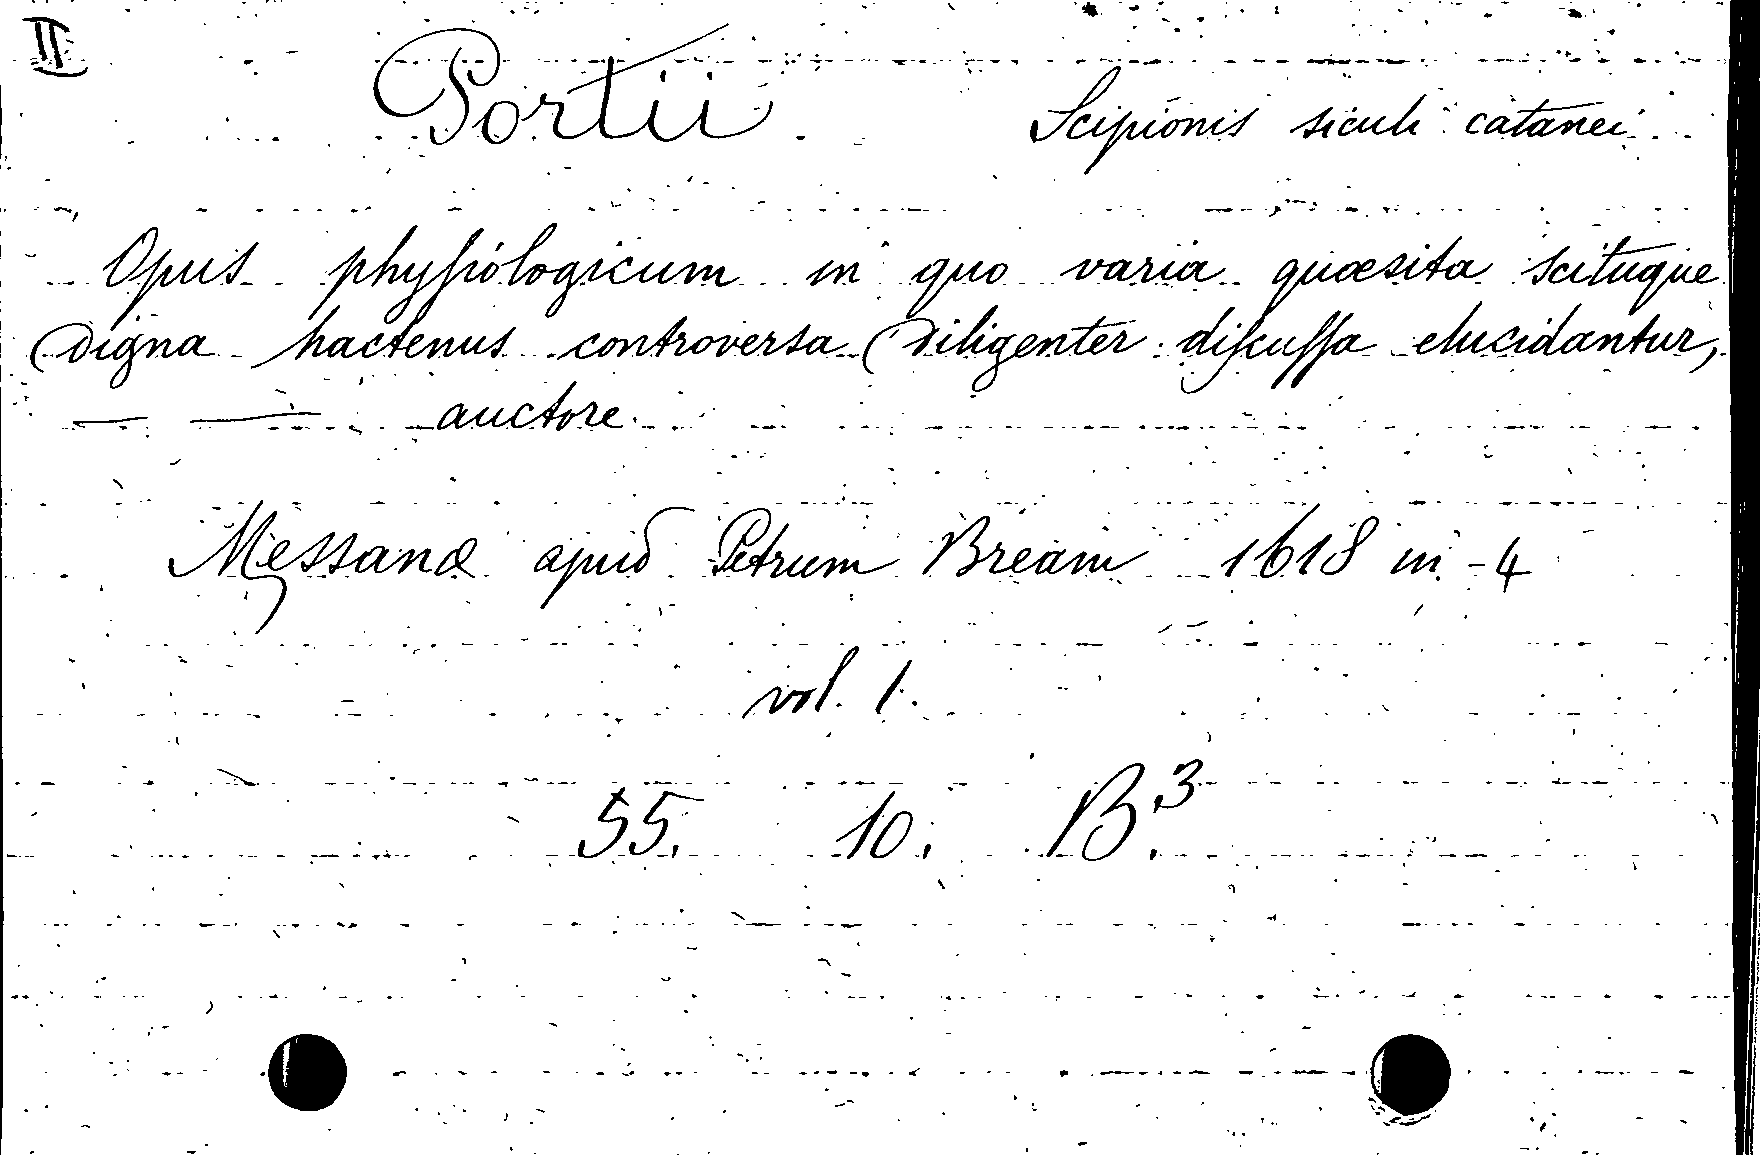 II
Portii Scipionis siculi catanei
Opus phyſiologicum in quo varia quæsita scituque
digna hactenus controversa diligenter diſcuſſa elucidantur,
— — auctore
Messanæ apud Petrum Bream 1618 in-4
vol. 1.
55. 10. B.³